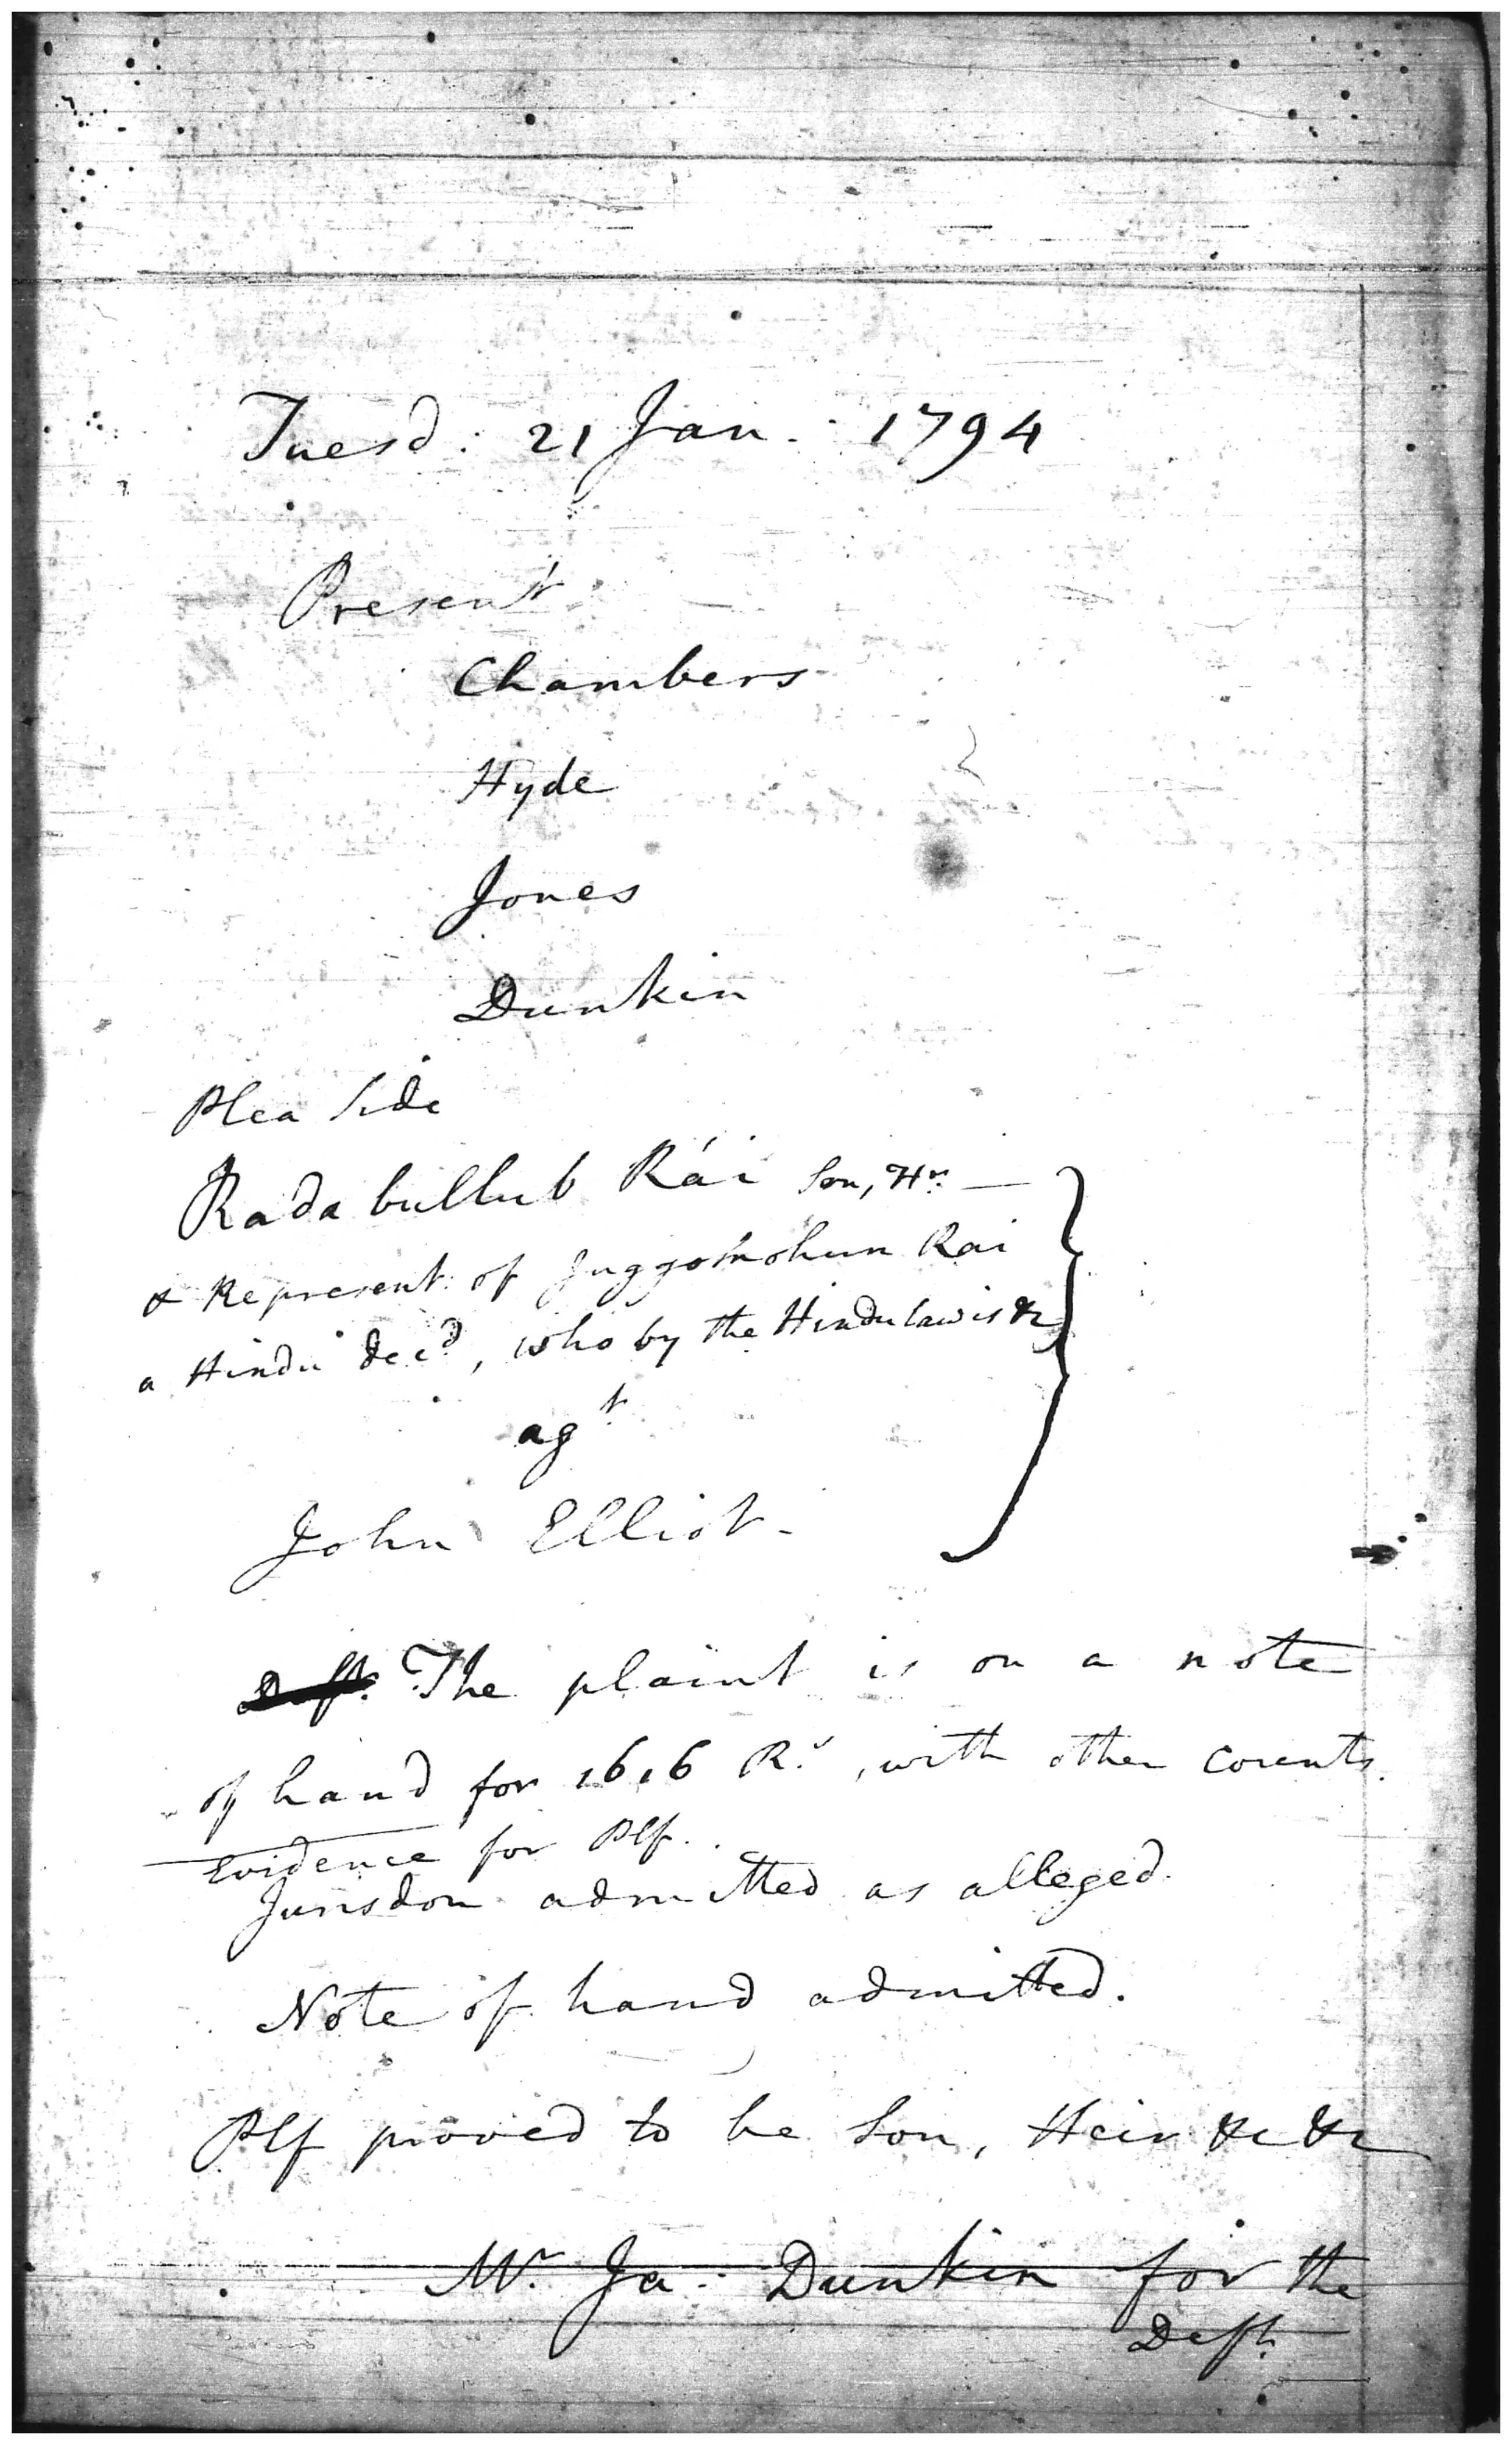 Tuesd: 21 Jan. 1794
Present
Chambers
Hyde
Jones
Dunkin
Plea Side
Radabullub Rái Son, Hr. —
& Represent. of Juggomohun Rai
a Hindu decd, who by the Hindu law is &c
agt
John Elliot.
Deft. The plaint is on a note
of hand for 1616 Rs, with other counts.
Evidence for Plf.
Jurisdon admitted as alleged.
Note of hand admitted.
Plf proved to be Son, Heir &c &c
Mr. Ja. Dunkin for the
Deft.